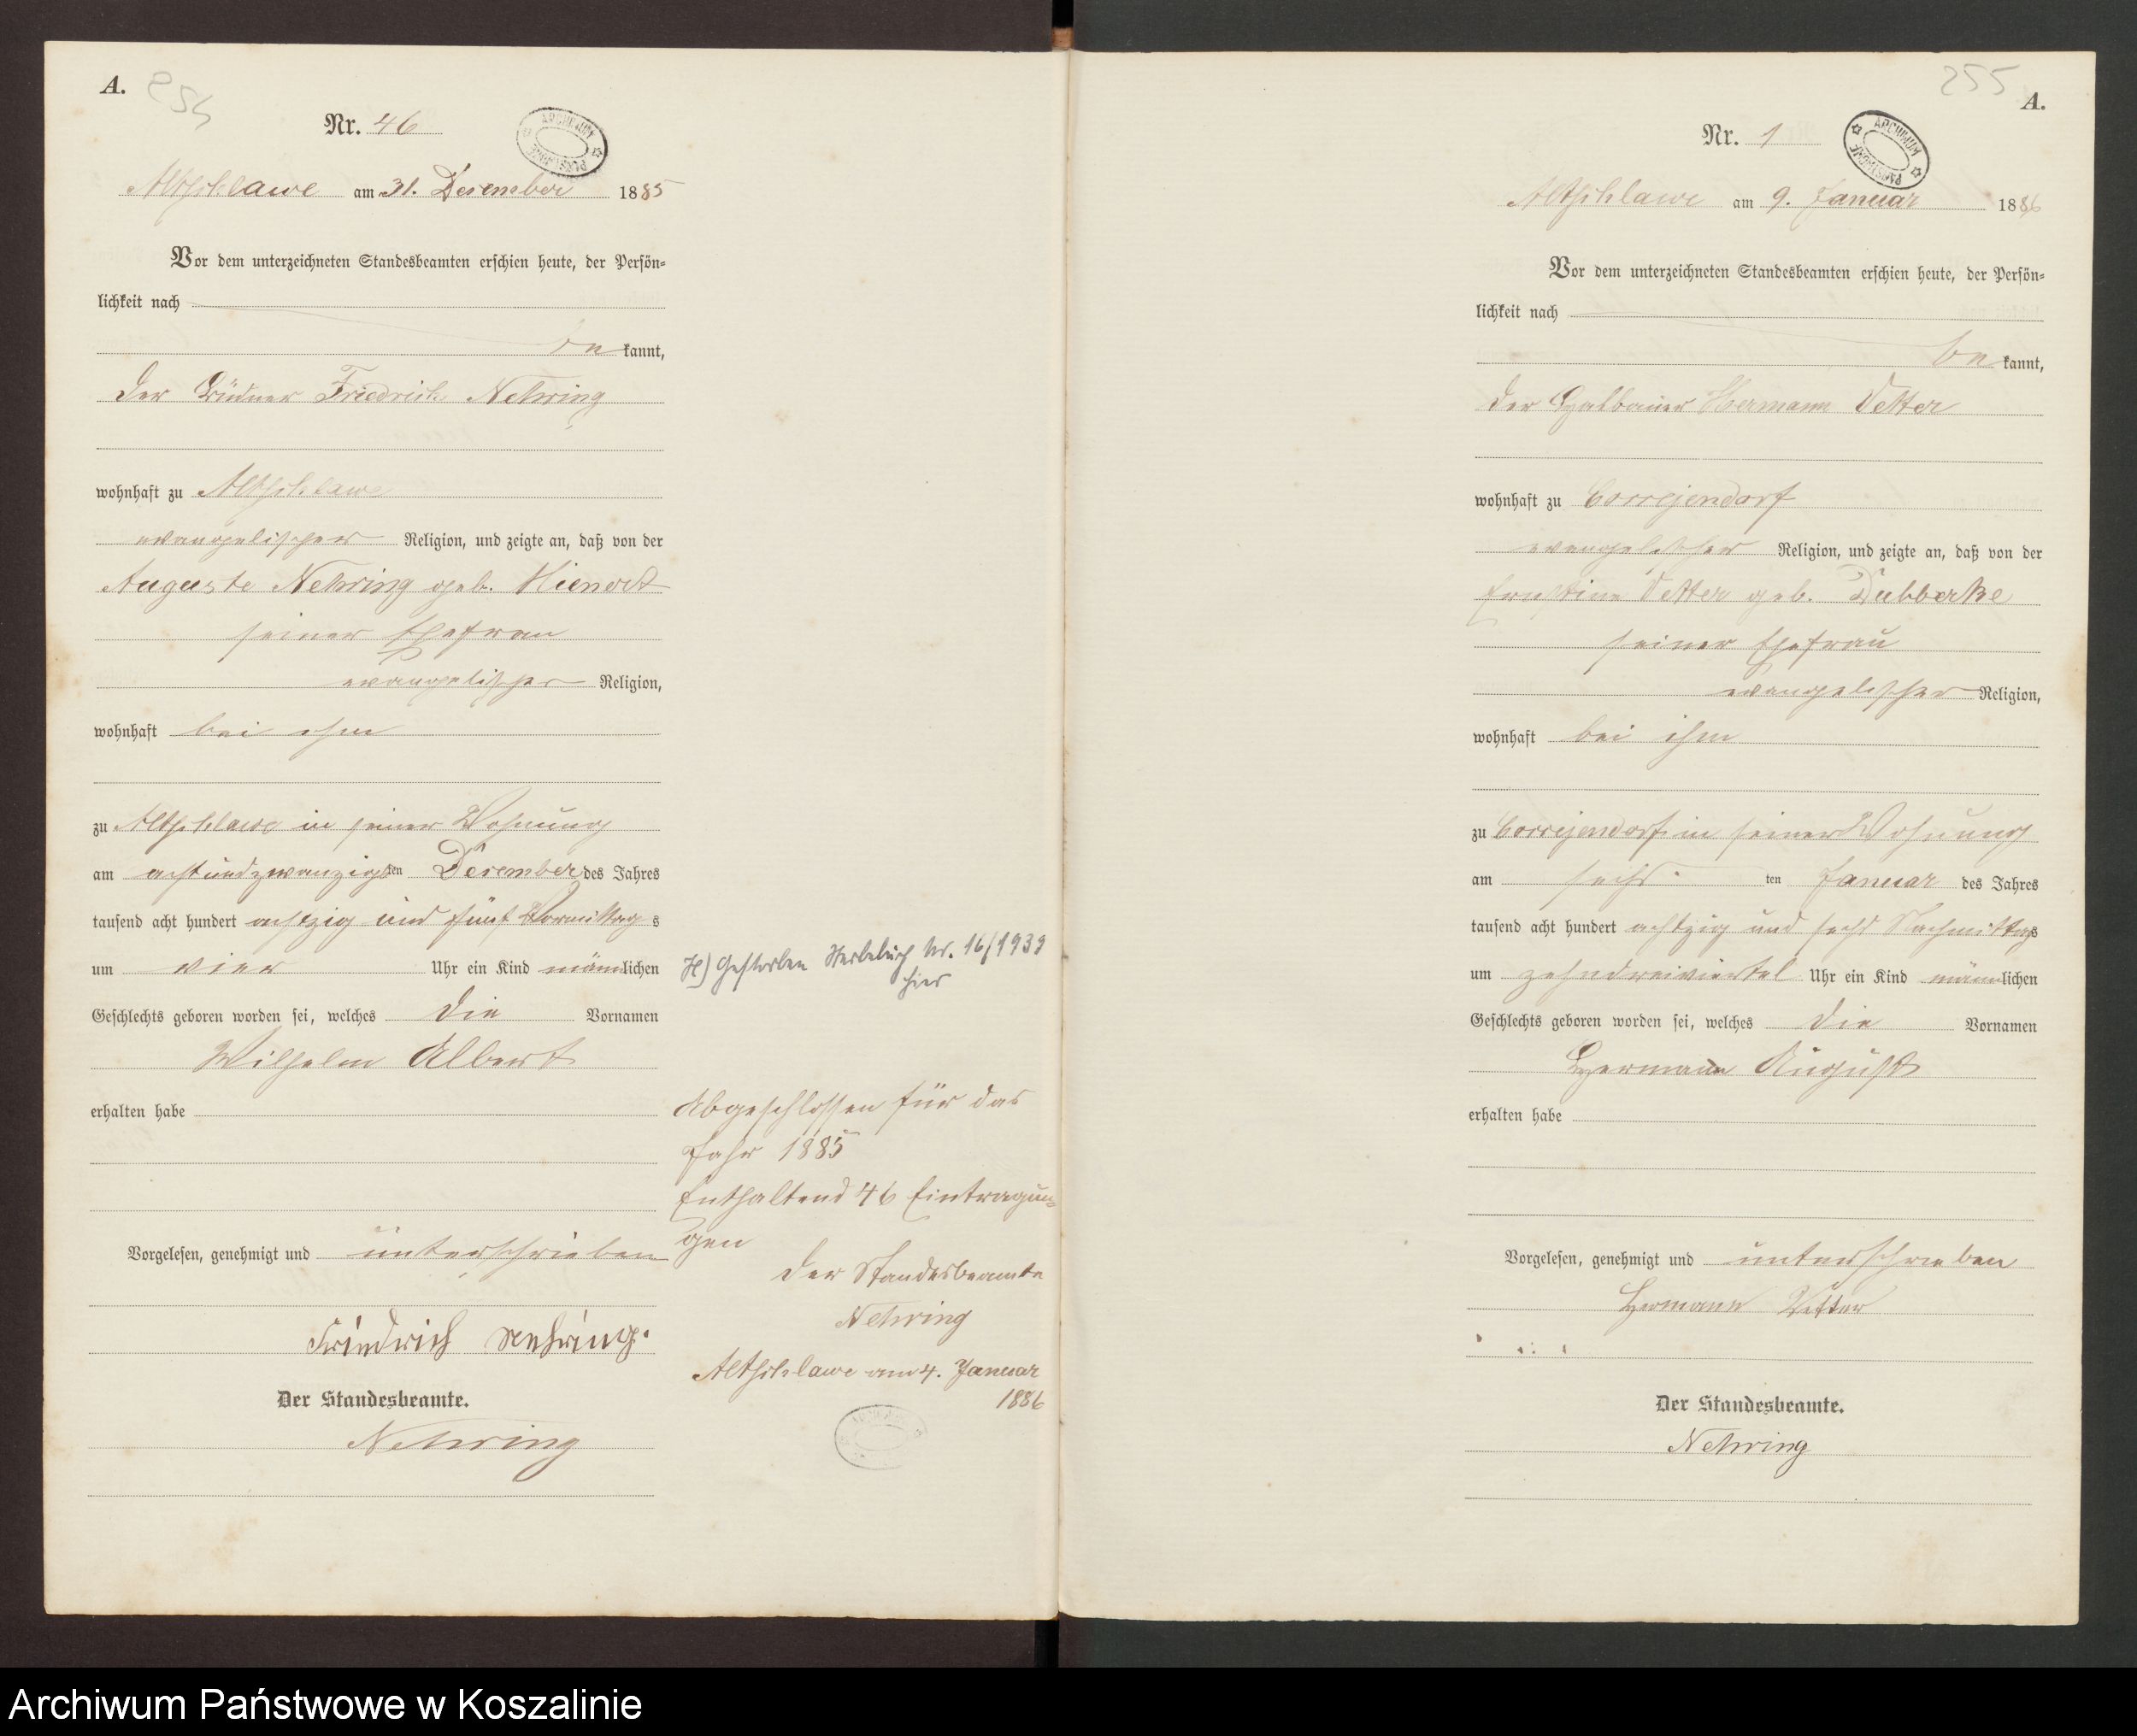 A.
254
Nr. 46
ARCHIWUM PAŃSTWOWE
Altschlawe am 31. Dezember 1885
Vor dem unterzeichneten Standesbeamten erschien heute, der Persön-
lichkeit nach
be kannt,
der Büdner Friedrich Nehring
wohnhaft zu Altschlawe
evangelischer Religion, und zeigte an, daß von der
Auguste Nehring geb.
seiner Ehefrau
evangelischer Religion,
wohnhaft bei ihm
zu Altschlawe in seiner Wohnung
am achtundzwanzigsten Dezember des Jahres
tausend acht hundert achtzig und fünf Vormittags
um vier Uhr ein Kind männlichen
Geschlechts geboren worden sei, welches die Vornamen
Wilhelm Albert
erhalten habe
Vorgelesen, genehmigt und unterschrieben
Friedrich Nehring.
Der Standesbeamte.
Nehring
Gestorben Sterbebuch Nr. 16/1939
hier
Abgeschlossen für das
Jahr 1885
Enthaltend 46 Eintragun-
gen
Der Standesbeamte
Nehring
Altschlawe am 4. Januar
1886
255
A.
Nr. 1
ARCHIWUM PAŃSTWOWE
Altschlawe am 9. Januar 1886
Vor dem unterzeichneten Standesbeamten erschien heute, der Persön-
lichkeit nach
be kannt,
der Halbbauer Hermann Vetter
wohnhaft zu Coccejendorf
evangelischer Religion, und zeigte an, daß von der
Ernstine Vetter geb. Dubberke
seiner Ehefrau
evangelischer Religion,
wohnhaft bei ihm
zu Coccejendorf in seiner Wohnung
am sechs ten Januar des Jahres
tausend acht hundert achtzig und sechs Nachmittags
um zehndreiviertel Uhr ein Kind männlichen
Geschlechts geboren worden sei, welches die Vornamen
Hermann August
erhalten habe
Vorgelesen, genehmigt und unterschrieben
Hermann Vetter
Der Standesbeamte.
Nehring
Archiwum Państwowe w Koszalinie